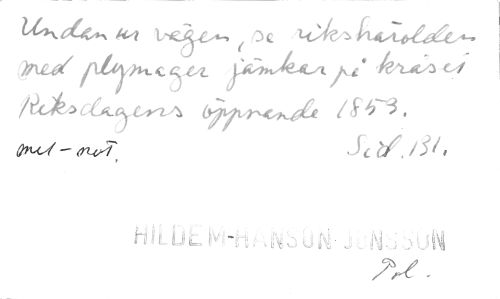 Undan ur vägen, se riksharolden
med plymager jämkar på kräset
Riksdagens öppnande 1853.
mel-not. Sid. 131.
HILDEM-HANSON-JONSSON
Pol.